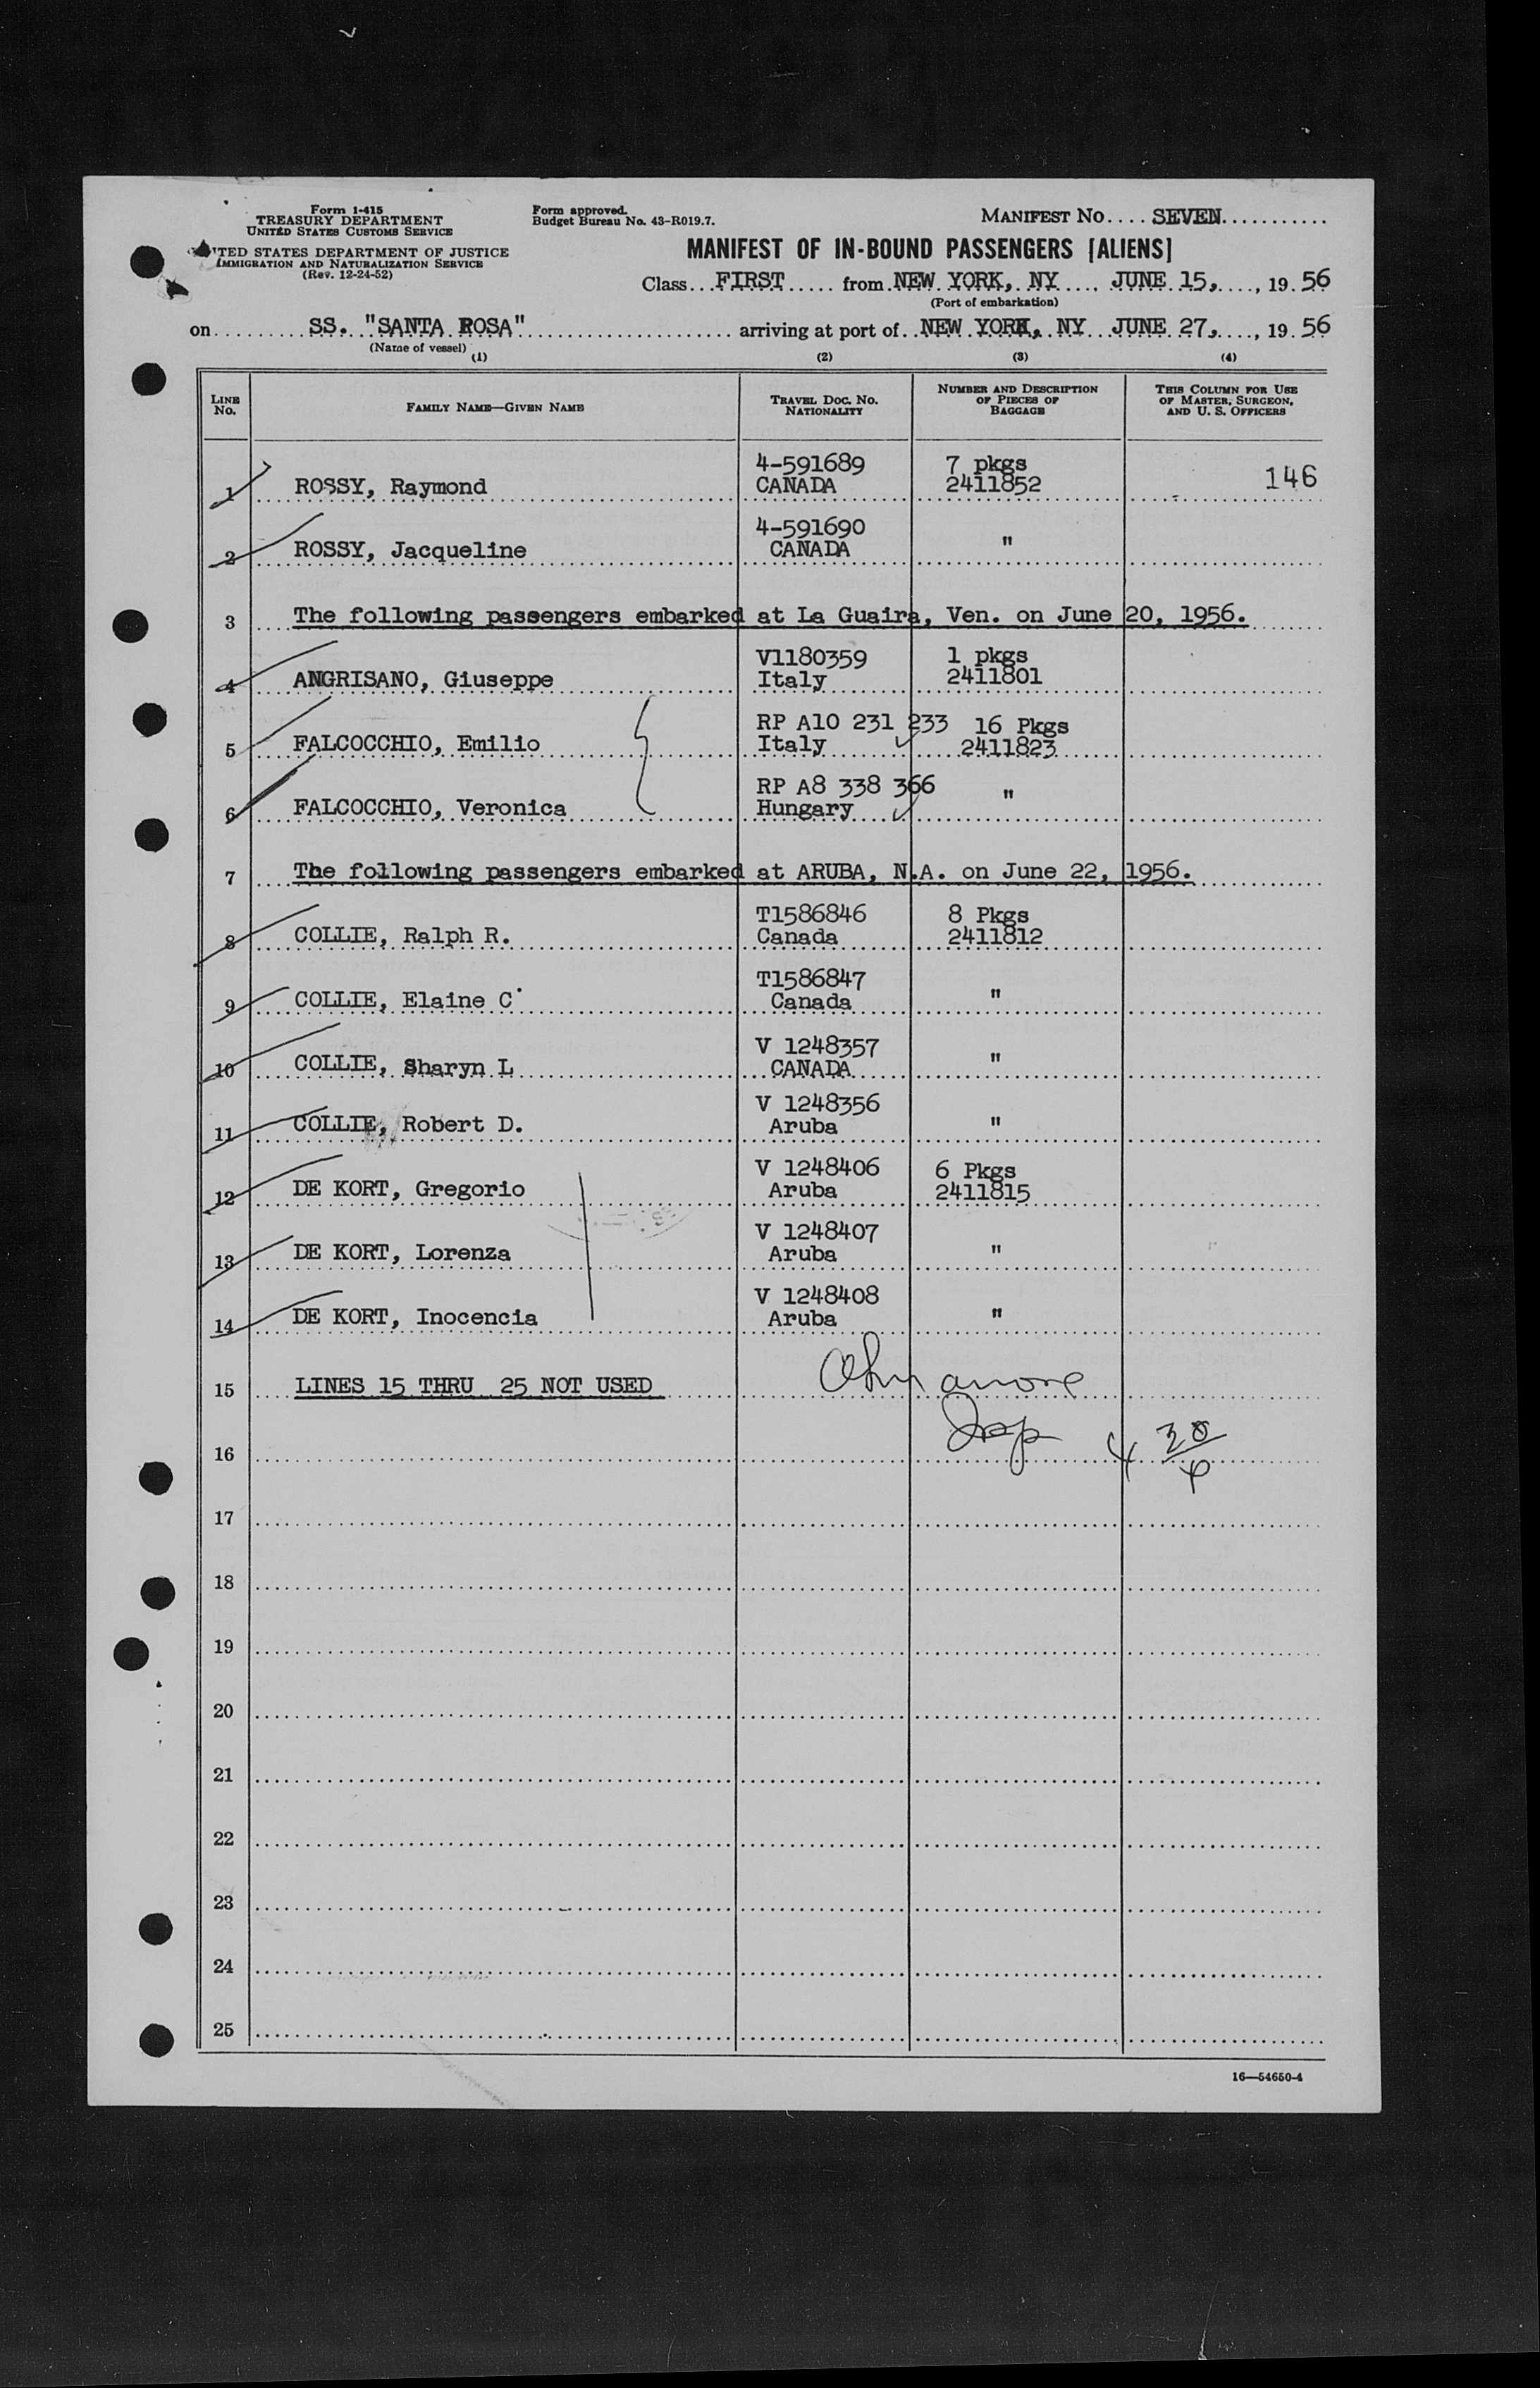 Form I-415
TREASURY DEPARTMENT
UNITED STATES CUSTOMS SERVICE
TED STATES DEPARTMENT OF JUSTICE
IMMIGRATION AND NATURALIZATION SERVICE
(Rev. 12-24-52)
Form approved.
Budget Bureau No. 43-R019.7.
MANIFEST NO.... SEVEN...........
MANIFEST OF IN-BOUND PASSENGERS [ALIENS]
Class...FIRST..... from NEW YORK, NY...., JUNE 15,...., 19 56
(Port of embarkation)
on.......... SS. "SANTA ROSA"...................... arriving at port of..NEW YORK, NY JUNE 27,...., 19 56
(Name of vessel)
(1) (2) (3) (4)
LINE NO. FAMILY NAME—GIVEN NAME TRAVEL DOC. NO. NATIONALITY NUMBER AND DESCRIPTION OF PIECES OF BAGGAGE THIS COLUMN FOR USE OF MASTER, SURGEON, AND U. S. OFFICERS
4-591689 7 pkgs
1 ROSSY, Raymond CANADA 2411852 146
4-591690
2 ROSSY, Jacqueline CANADA "
3 The following passengers embarked at La Guaira, Ven. on June 20, 1956.
V1180359 1 pkgs
4 ANGRISANO, Giuseppe Italy 2411801
RP A10 231 233 16 Pkgs
5 FALCOCCHIO, Emilio Italy 2411823
RP A8 338 366
6 FALCOCCHIO, Veronica Hungary "
7 The following passengers embarked at ARUBA, N.A. on June 22, 1956.
T1586846 8 Pkgs
8 COLLIE, Ralph R. Canada 2411812
T1586847
9 COLLIE, Elaine C. Canada "
V 1248357
10 COLLIE, Sharyn L CANADA "
V 1248356
11 COLLIE, Robert D. Aruba "
V 1248406 6 Pkgs
12 DE KORT, Gregorio Aruba 2411815
V 1248407
13 DE KORT, Lorenza Aruba "
V 1248408
14 DE KORT, Inocencia Aruba "
15 LINES 15 THRU 25 NOT USED
16
17
18
19
20
21
22
23
24
25
16—54650-4